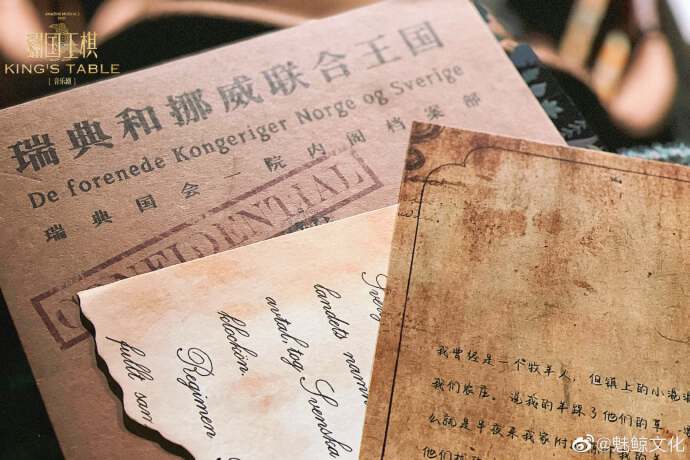 AMAZING MUSICALS
翡国王棋
KING'S TABLE
[ 音乐剧 ]
瑞典和挪威联合王国
De forenede Kongeriger Norge og Sverige
瑞典国会一院内阁档案部
CONFIDENTIAL
landets namn
avtal tog Svenska
klockön.
Regimen
fullt som
我曾经是一个牧羊人,但镇上的小混混
我们农庄。说我的羊踩了他们的草
么就是半夜来我家附
他们
@魅鲸文化